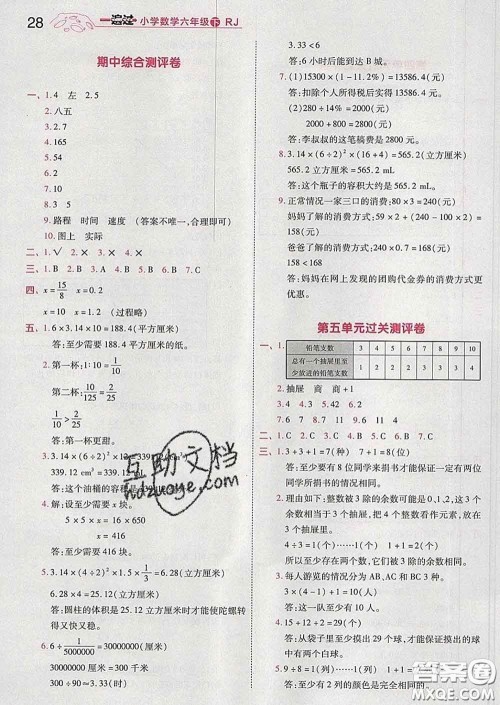 28 一遍过 小学数学六年级下 RJ
期中综合测评卷
一、1.4 左 2.5
2.八五
3.2.7
4.165
5.54
6.2
7.2
8.20
9.路程 时间 速度 (答案不唯一,合理即可)
10.图上 实际
二、1.√ 2.× 3.× 4.×
三、1.B 2.B 3.B 4.A 5.B 6.B 7.C
四、x=15/8 x=0.2
x=10 x=0.2
五、1.6×3.14×10=188.4(平方厘米)
答:至少需要188.4平方厘米的纸。
2.第一杯:1∶10=1/10
第二杯:2/125=2/125
1/10>2/125
答:第一杯更甜。
339.12 cm³=339.12 mL
答:这个油桶的容积是
4.解:设至少需要x块。
15×15×x=
x=416
答:至少需要416块。
5.3.14×(4÷2)²×1.5=6.28(立方厘米)
6.28×4=25.12(立方厘米)
答:圆柱的体积是25.12立方厘米时才能使陀螺转
得又快又稳。
6.6÷1/5000000=30000000(厘米)
30000000厘米=300千米
300÷90≈3.33(时)
3.33<6
答:6小时后能到达B城。
7.(1)15300×(1-11.2%)=13586.4(元)
答:扣除个人所得税后实得13586.4元。
(2)280÷14%=2000(元)
2000+800=2800(元)
答:李叔叔的这笔稿费是2800元。
8.3.14×(6÷2)²×(16+4)=565.2(立方厘米)
565.2立方厘米=565.2 mL
答:这个瓶子的容积大约是565.2 mL。
9.正常情况一家三口的消费:80×3=240(元)
158<168
答:妈妈在网上发现的团购代金券的消费方式更
便宜。
第五单元过关测评卷
一、1. 铅笔支数 3 4 5 6 7 8 9 10
总有一个抽屉里至少放进的铅笔支数 1 1 2 2 2 2 3 3
2.抽屉 商 商+1
3.4 4.3 5.42 6.2
7.6 7 8.7 9.11 11 4
二、1.C 2.B 3.A 4.B 5.C
三、1.6+1=7(种) 7+1=8(位)
答:至少要有8位同学来捐书才能保证有两位同
学所捐书的种类一样。
2.理由如下:整数被3除的余数有0,1,2三种情
况,用0,1,2做3个抽屉,把4个整数看作元素,放
入3个抽屉里。
4÷3=1(个)……1(个) 1+1=2(个)
答:至少有2个数被3除的余数相同。
3.每人游览的情况为AB、AC和BC 3种。
3×(4-1)+1=10(人)
答:至少有10人。
答:从袋子里至少摸出29个球,才能保证摸出的球
中有两个白球。
5.9÷8=1(列)……1(列) 1+1=2(列)
答:至少有2列的颜色是完全相同的。
互助文档
hdzuoye.com
答案圈
MXQE.COM